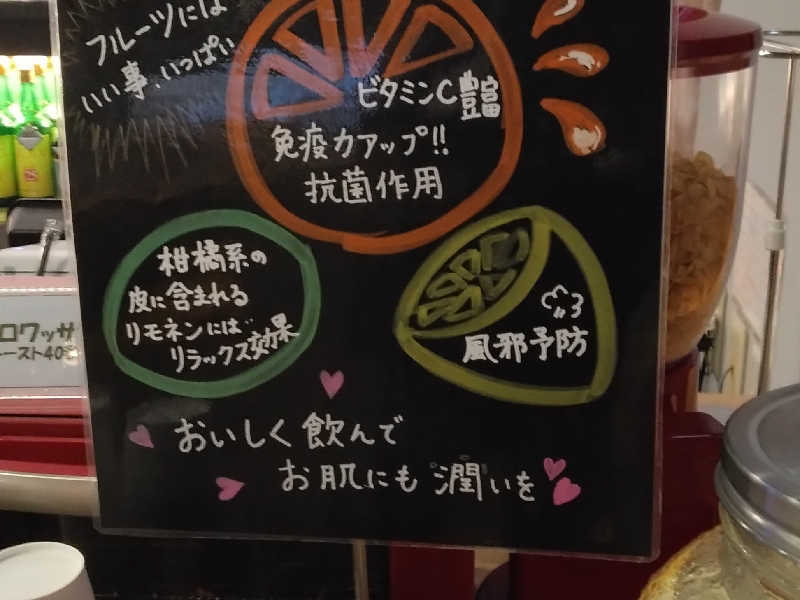 フルーツには
いい事、いっぱい
ビタミンC豊富
免疫力アップ!!
抗菌作用
柑橘系の
皮に含まれる
リモネンには
リラックス効果
風邪予防
おいしく飲んで
お肌にも潤いを
ロワッサ
ースト40